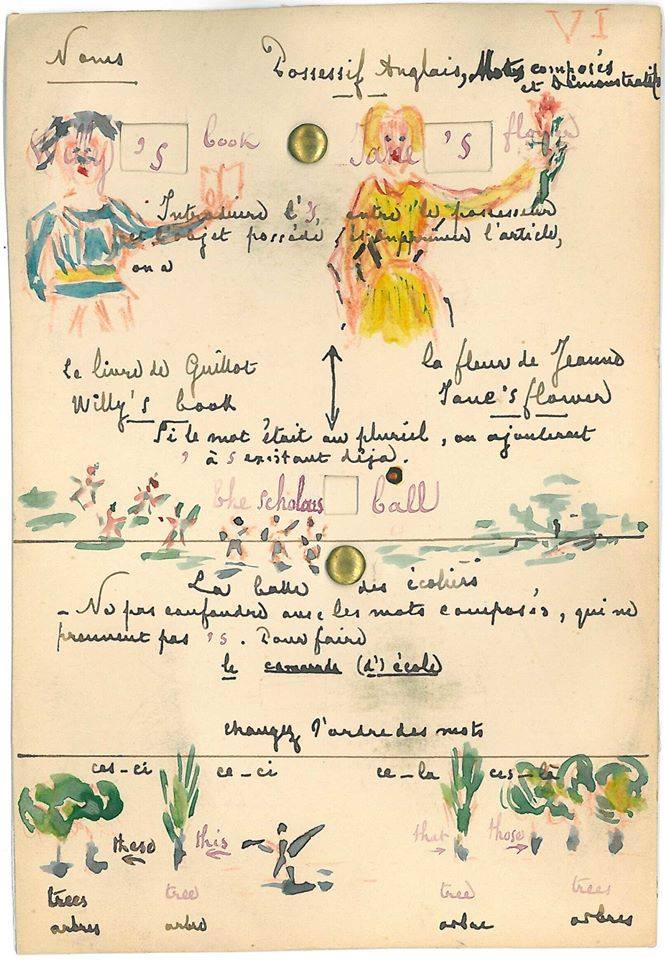 VI
Noms
Possessif Anglais, Mots composés
et Démonstratifs
's book
Jane 's flower
Introduire l's, entre le possesseur
et l'objet possédé, supprimer l'article,
on a
Le livre de Guillot
la fleur de Jeanne
Willy's book
Jane's flower
Si le mot était au pluriel, on ajouterait
' à s existant déja.
the scholars ball
La balle des écoliers
- Ne pas confondre avec les mots composés, qui ne
prennent pas 's. Pour faire
le camarade (d') école
changez l'ordre des mots
ces-ci ce-ci ce-la ces-là
these this that those
trees tree tree trees
arbres arbre arbre arbres